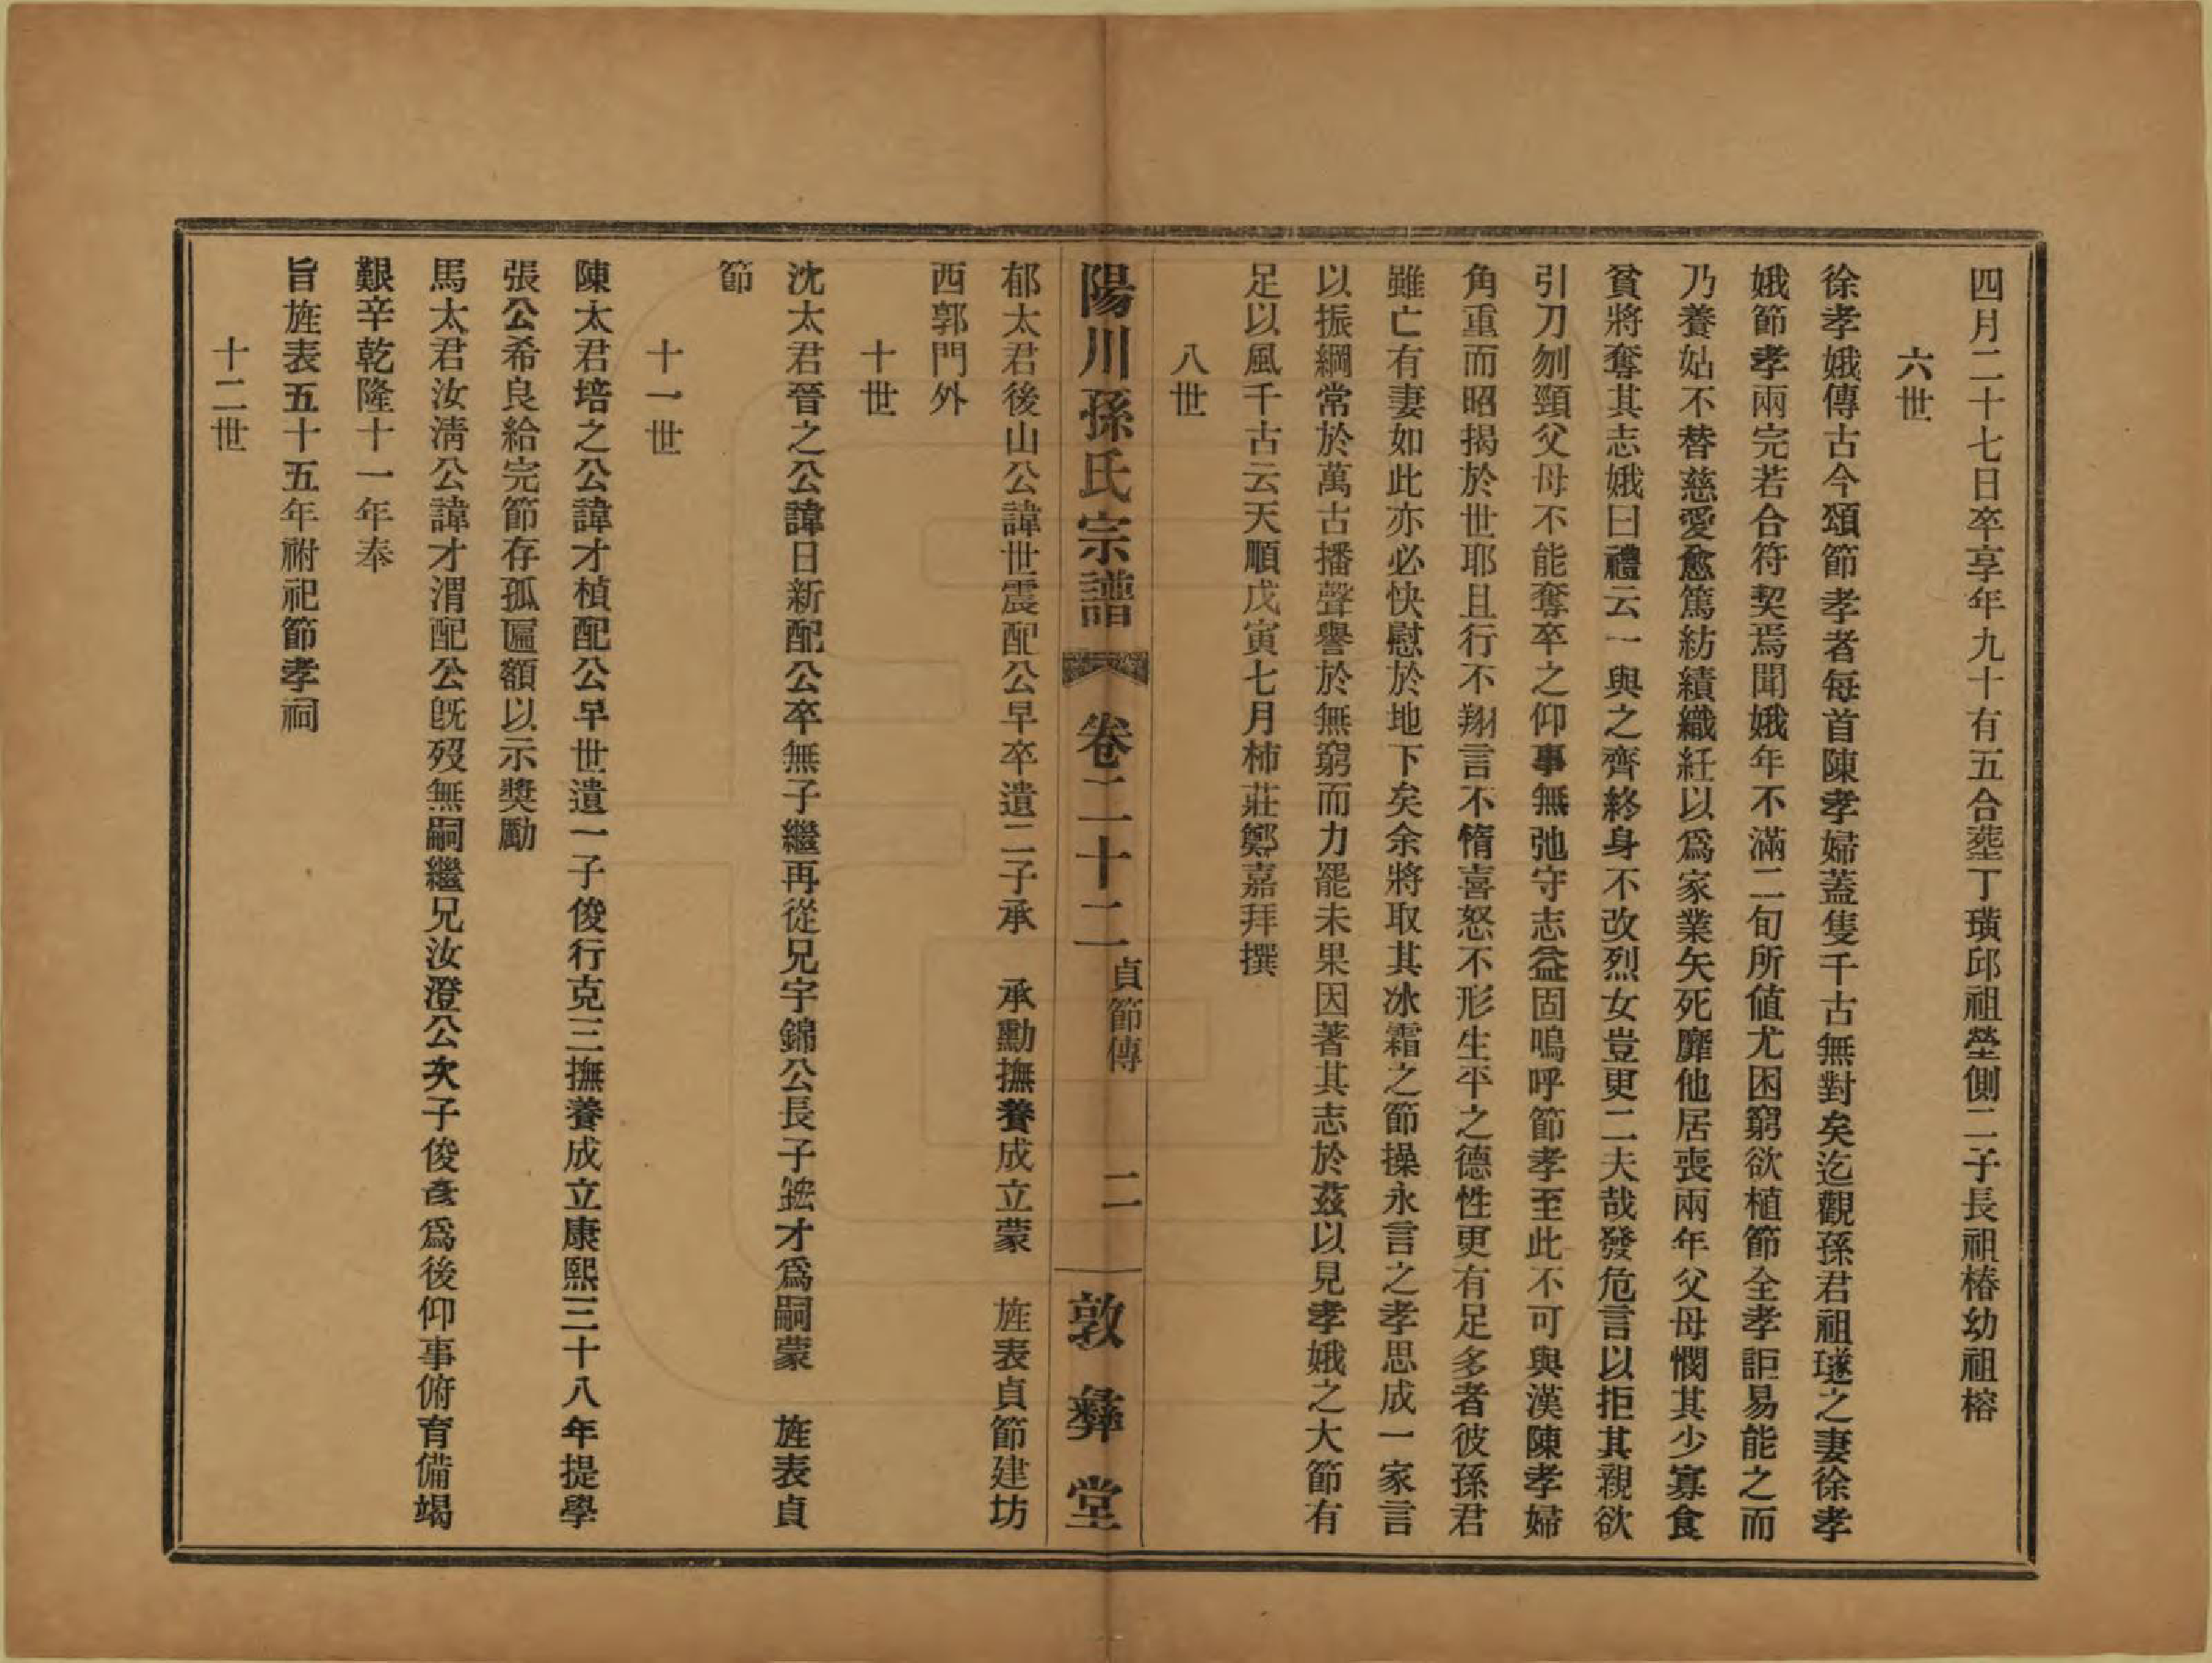 四月二十七日卒享年九十有五合塟丁璜邱祖塋側二子長祖椿幼祖榕
六世
徐孝娥傳古今頌節孝者每首陳孝婦蓋隻千古無對矣迄觀孫君祖璲之妻徐孝
娥節孝兩完若合符契焉聞娥年不滿二旬所値尤困窮欲植節全孝詎易能之而
乃養姑不替慈愛愈篤紡績織紝以爲家業矢死靡他居喪兩年父母憫其少寡食
貧將奪其志娥曰禮云一與之齊終身不改烈女豈更二夫哉發危言以拒其親欲
引刀刎頸父母不能奪卒之仰事無弛守志益固嗚呼節孝至此不可與漢陳孝婦
角重而昭揭於世耶且行不翔言不惰喜怒不形生平之德性更有足多者彼孫君
雖亡有妻如此亦必快慰於地下矣余將取其冰霜之節操永言之孝思成一家言
以振綱常於萬古播聲譽於無窮而力罷未果因著其志於茲以見孝娥之大節有
足以風千古云天順戊寅七月柿莊鄭嘉拜撰
八世
陽川孫氏宗譜 卷二十二 貞節傳 二 敦彝堂
郁太君後山公諱世震配公早卒遺二子承 承勳撫養成立蒙 旌表貞節建坊
西郭門外
十世
沈太君晉之公諱日新配公卒無子繼再從兄宇錦公長子䤥才爲嗣蒙 旌表貞
節
十一世
陳太君培之公諱才楨配公早世遺一子俊行克三撫養成立康熙三十八年提學
張公希良給完節存孤匾額以示獎勵
馬太君汝淸公諱才渭配公旣歿無嗣繼兄汝澄公次子俊彥爲後仰事俯育備竭
艱辛乾隆十一年奉
旨旌表五十五年祔祀節孝祠
十二世